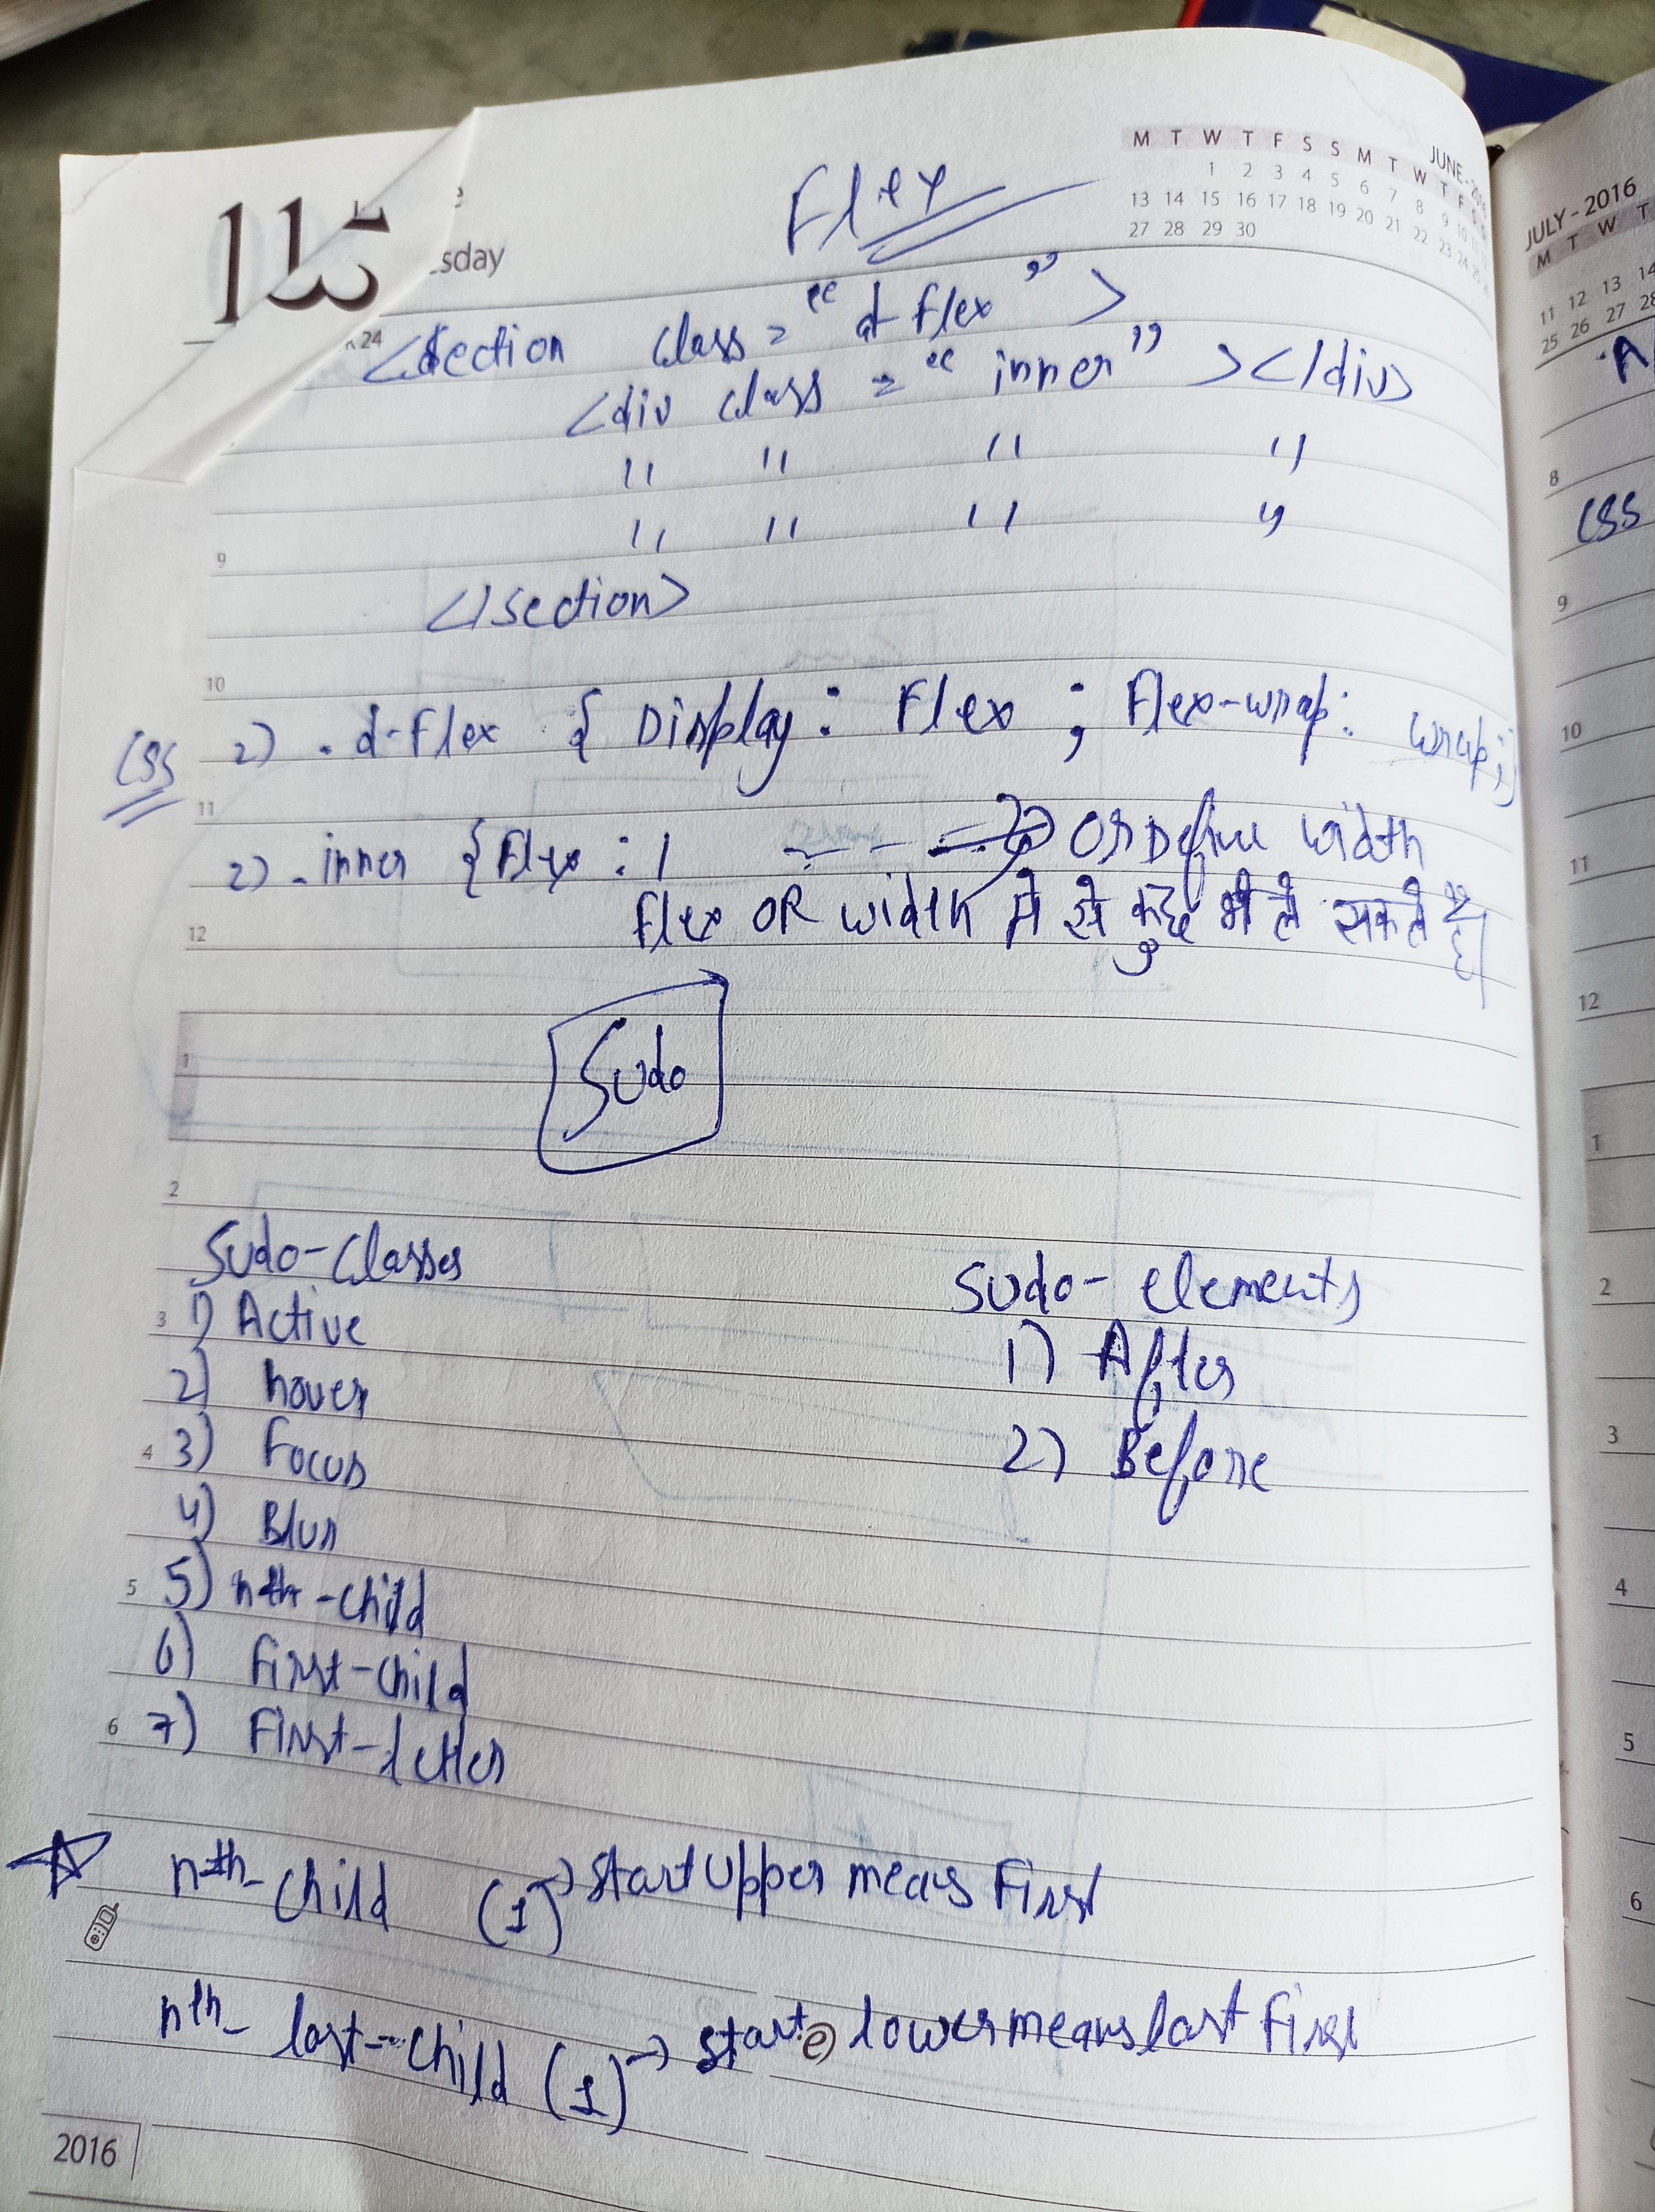 Flex
M T W T F S S M T W T F S S
JUNE - 2016
1 2 3 4 5 6 7 8 9 10 11
13 14 15 16 17 18 19 20 21 22 23 24 25
27 28 29 30
sday
24
<section class = "d-flex">
<div class = "inner"></div>
" " " "
" " " "
9
</section>
10
CSS 2) .d-flex { Display : Flex ; Flex-wrap: wrap;}
11
2) .inner {Flex : 1 - - - → OR Define width
12
flex OR width मे से कुछ भी ले सकते है।
1
Sudo
2
Sudo-Classes
Sudo-elements
3
1) Active
1) After
2) hover
2) Before
4
3) Focus
4) Blur
5
5) nth-child
6) First-child
6
7) First-letter
nth-child (1) → start upper means First
nth-last-child (1) → start lower means last first
2016
JULY - 2016
M T W T
11 12 13 14
25 26 27 28
A
8
CSS
9
10
11
12
1
2
3
4
5
6